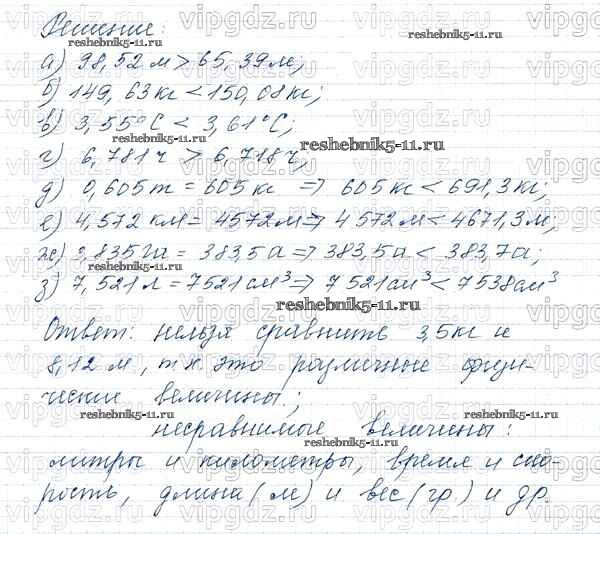 Решение:
а) 98,52 м > 65,39 м;
б) 149,63 кг < 150,08 кг;
в) 3,55°С < 3,61°С;
г) 6,781 ч > 6,718 ч,
д) 0,605 т = 605 кг => 605 кг < 691,3 кг;
е) 4,572 км = 4572 м => 4572 м < 4671,3 м;
ж) 3,835 га = 383,5 а => 383,5 а < 383,7 а;
з) 7,521 л = 7521 см³ => 7521 см³ < 7538 см³
Ответ: нельзя сравнить 3,5 кг и
8,12 м, т.к. это различные физи-
ческие величины;
несравнимые величины:
литры и километры, время и ско-
рость, длина (м) и вес (гр) и др.